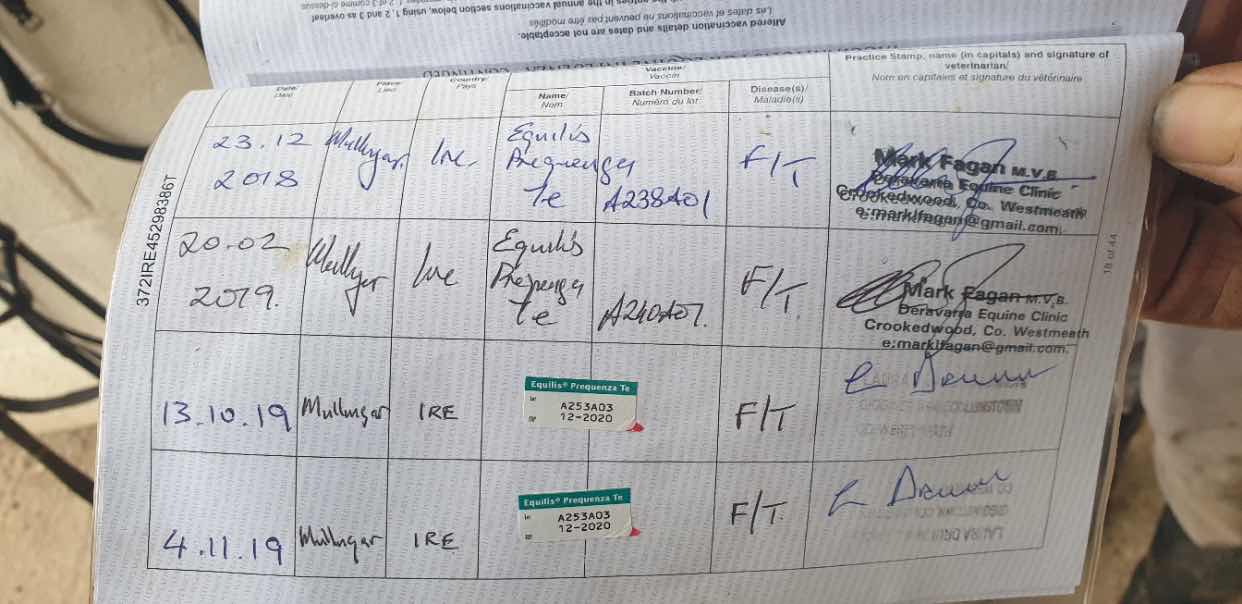 Les dates et vaccinations ne peuvent pas être modifiés
Altered vaccination details and dates are not acceptable.
Practice Stamp, name (in capitals) and signature of
veterinarian/
Nom en capitals et signature du vétérinaire
Date/
Place/
Lieu
Country/
Pays
Vaccine/
Vaccin
Name/
Nom
Batch Number/
Numéro du lot
Disease(s)/
Maladie(s)
372IRE45298386T
18 of 44
23.12
2018
Mullingar
Ire.
Equilis
Prequenza
Te
A238A01
F/T
Mark Fagan M.V.B.
Deravarra Equine Clinic
Crookedwood, Co. Westmeath
e:marklfagan@gmail.com
20.02
2019.
Mullingar
Ire
Equilis
Prequenza
Te
A240A07.
F/T.
Mark Fagan M.V.B.
Deravarra Equine Clinic
Crookedwood, Co. Westmeath
e:marklfagan@gmail.com
13.10.19
Mullingar
IRE
Equilis® Prequenza Te
A253A03
12-2020
F/T
4.11.19
Mullingar
IRE
Equilis® Prequenza Te
A253A03
12-2020
F/T.